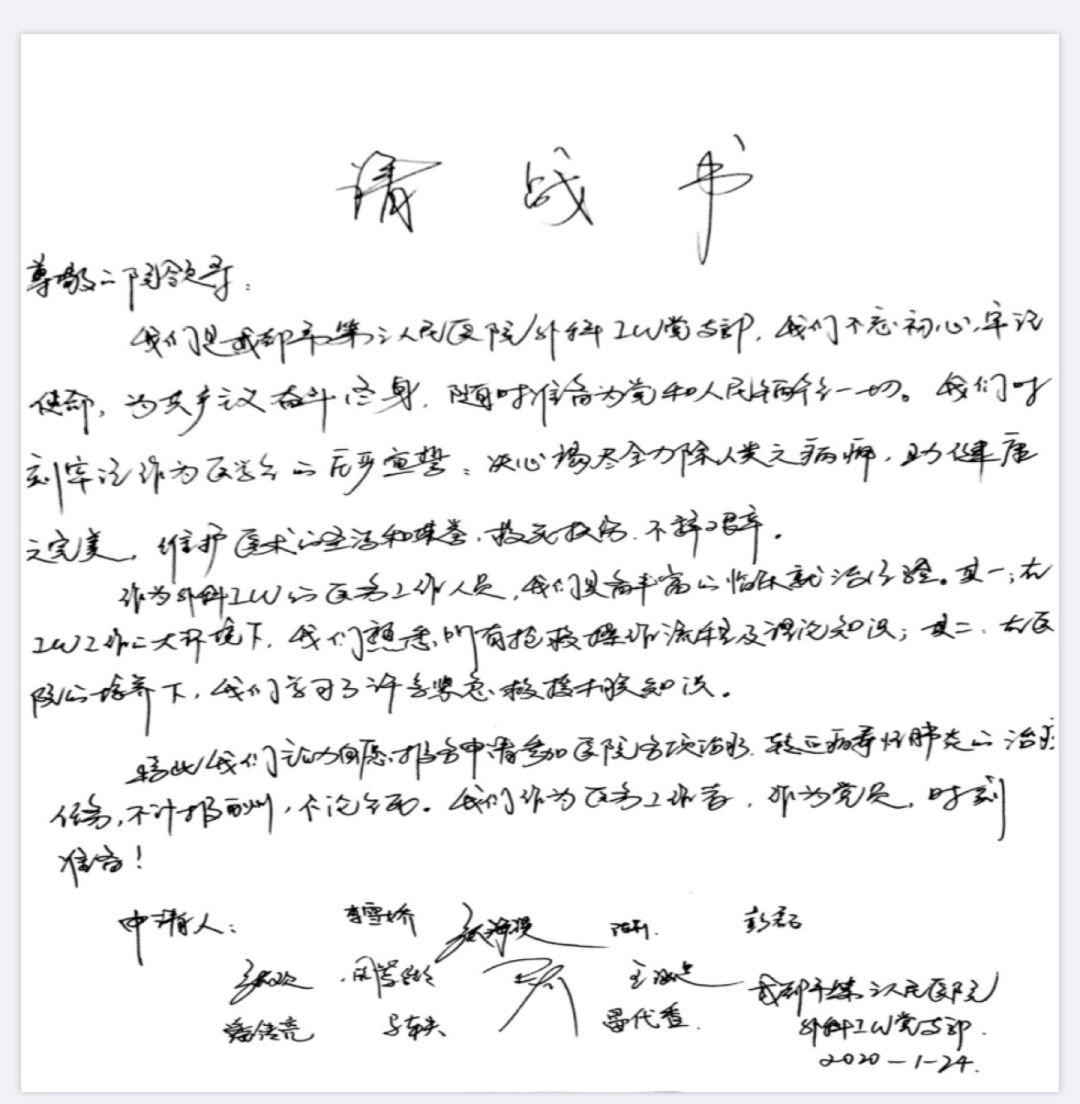 请战书
尊敬的院领导：
我们是成都市第三人民医院外科ICU党支部，我们不忘初心，牢记
使命，为共产主义奋斗终身，随时准备为党和人民牺牲一切。我们时
刻牢记作为医学生的庄严宣誓：决心竭尽全力除人类之病痛，助健康
之完美，维护医术的圣洁和荣誉，救死扶伤，不辞艰辛。
作为外科ICU的医务工作人员，我们具备丰富的临床救治经验。其一，在
ICU工作的大环境下，我们熟悉所有抢救操作流程及理论知识；其二，在医
院的培养下，我们学习了许多紧急救援相关知识。
特此我们 自愿报名申请参加医院各项 病毒性肺炎的治疗
任务，不计报酬，不论生死。我们作为医务工作者，作为党员，时刻
准备！
申请人： 李雪娇 彭磊
成都市第三人民医院
外科ICU党支部
2020-1-24.